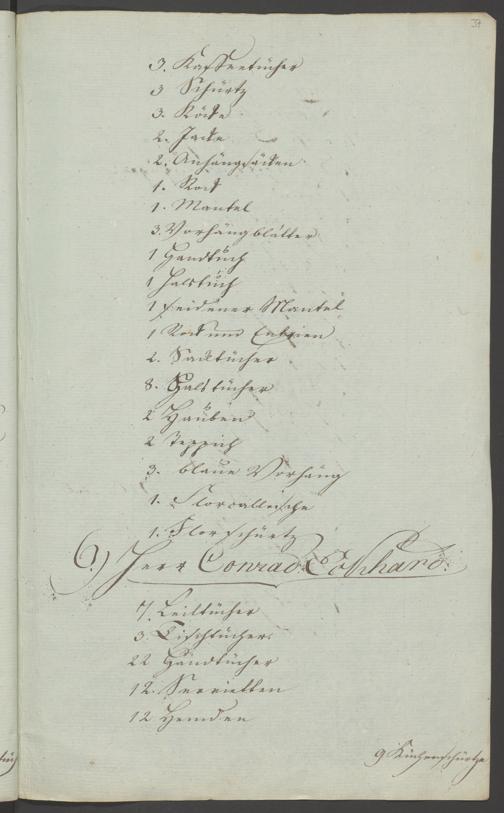 37
3. Kaffeetücher
3 Schürtz
3. Röcke
2. Jacke
2. Anhängsäcken
1. Rock
1. Mantel
3. Vorhängblätter
1 Handtuch
1 Halstuch
1 seidener Mantel
1 Rock und
2. Sacktücher
8. Halstücher
2 Hauben
2 Teppich
3. blaue Vorhäng
1.
1. Florschürtz
6.) Herr Conrad
7. Leiltücher
3 Tischtücher
22 Handtücher
12. Servietten
12 Hemden
9 Küchenschürtze